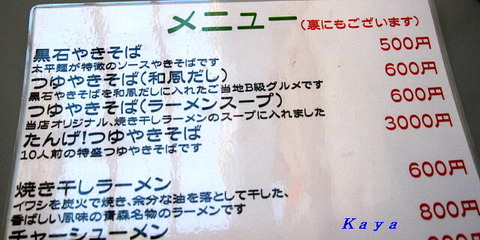 メニュー(裏にもございます)
黒石やきそば 500円
太平麺が特徴のソースやきそばです
つゆやきそば(和風だし) 600円
黒石やきそばを和風だしに入れたご当地B級グルメです
つゆやきそば(ラーメンスープ) 600円
当店オリジナル、焼き干しラーメンのスープに入れました
たんげ!つゆやきそば 3000円
10人前の特盛つゆやきそばです
焼き干しラーメン 600円
イワシを炭火で焼き、余分な油を落として干した、
香ばしい風味の青森名物のラーメンです
チャーシューメン 800円
Kaya